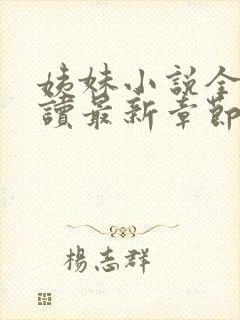 姊妹小説全
讀最新章節
楊志群